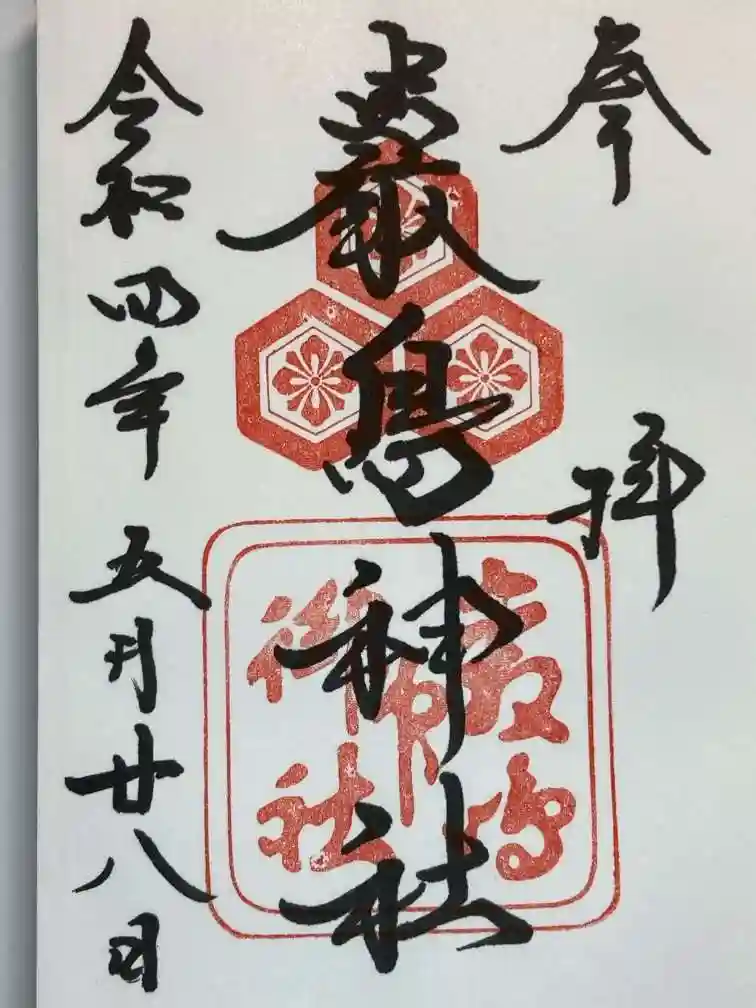 奉拝
厳島神社
嚴嶋
神
御社
令和四年五月廿八日